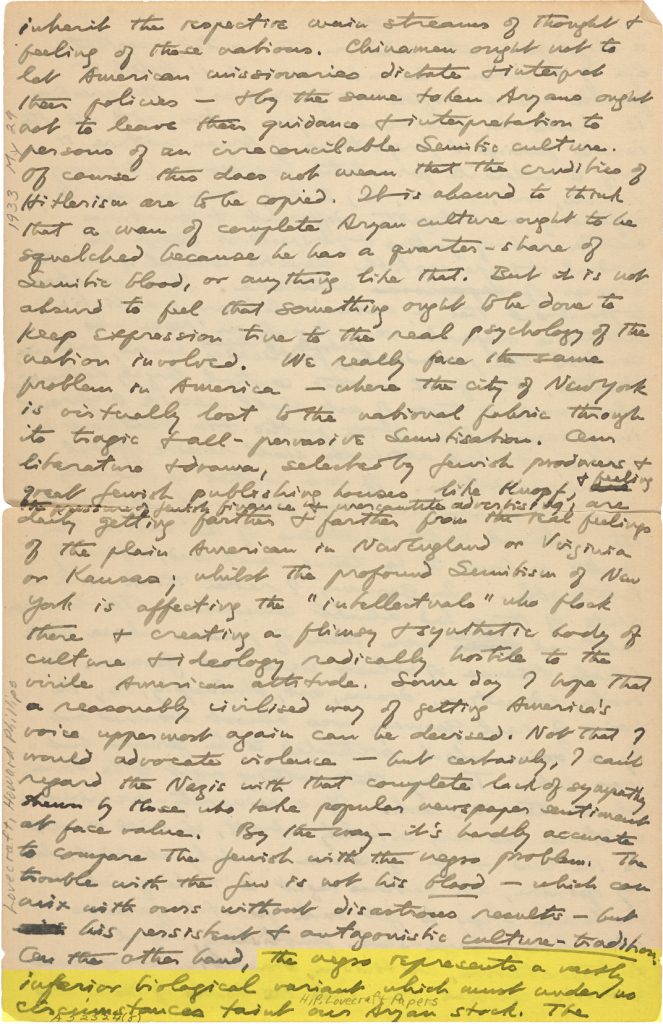 inherit the respective main streams of thought &
feeling of those nations. Chinamen ought not to
let American missionaries dictate & interpret
their policies — & by the same token Aryans ought
not to leave their guidance & interpretation to
persons of an irreconcilable Semitic culture.
Of course this does not mean that the crudities of
Hitlerism are to be copied. It is absurd to think
that a man of complete Aryan culture ought to be
squelched because he has a quarter-share of
Semitic blood, or anything like that. But it is not
absurd to feel that something ought to be done to
keep expression true to the real psychology of the
nation involved. We really face the same
problem in America — where the city of New York
is virtually lost to the national fabric through
its tragic & all-pervasive Semitisation. Our
literature & drama, selected by Jewish producers &
great Jewish publishing houses like Knopf, & feeling
the pressure of Jewish finance & mercantile advertising, are
daily getting farther & farther from the real feelings
of the plain American in New England or Virginia
or Kansas; whilst the profound Semitism of New
York is affecting the "intellectuals" who flock
there & creating a flimsy & synthetic body of
culture & ideology radically hostile to the
virile American attitude. Some day I hope that
a reasonably civilised way of getting America's
voice uppermost again can be devised. Not that I
would advocate violence — but certainly, I can't
regard the Nazis with that complete lack of sympathy
shewn by those who take popular newspaper sentiment
at face value. By the way — it's hardly accurate
to compare the Jewish with the negro problem. The
trouble with the Jew is not his blood — which can
mix with ours without disastrous results — but
his persistent & antagonistic culture-tradition.
On the other hand, the negro represents a vastly
inferior biological variant which must under no
circumstances taint our Aryan stock. The
1933 My 29
Lovecraft, Howard Phillips
H.P. Lovecraft Papers